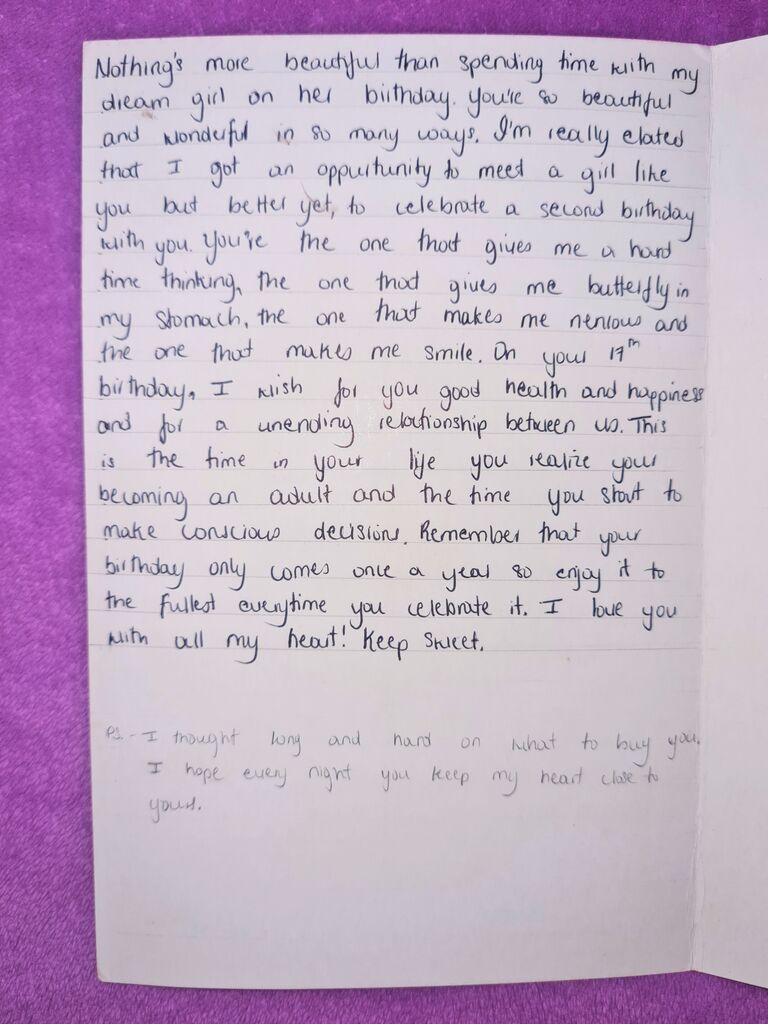 Nothing's more beautiful than spending time with my
dream girl on her birthday. You're so beautiful
and wonderful in so many ways. I'm really elated
that I got an oppurtunity to meet a girl like
you but better yet, to celebrate a second birthday
with you. You're the one that gives me a hard
time thinking, the one that gives me butterfly in
my stomach, the one that makes me nervous and
the one that makes me smile. On your 17th
birthday, I wish for you good health and happiness
and for a unending relationship between us. This
is the time in your life you realize your
becoming an adult and the time you start to
make conscious decisions. Remember that your
birthday only comes once a year so enjoy it to
the fullest everytime you celebrate it. I love you
with all my heart! Keep Sweet.
PS. - I thought long and hard on what to buy you.
I hope every night you keep my heart close to
yours.